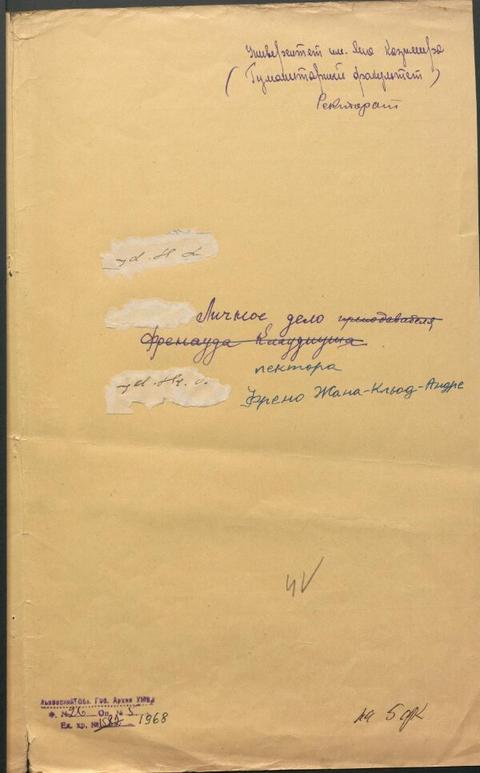 Университет им. Яна Казимира
(Гуманитарный факультет)
Ректорат
Личное дело преподавателя
Френауда Клаудиуша
лектора
Френо Жана-Клод-Андре
Львовский Обл. Гос. Архив УМВД
Ф. № 26 Оп. № 5
Ед. хр. № 1968
на 5